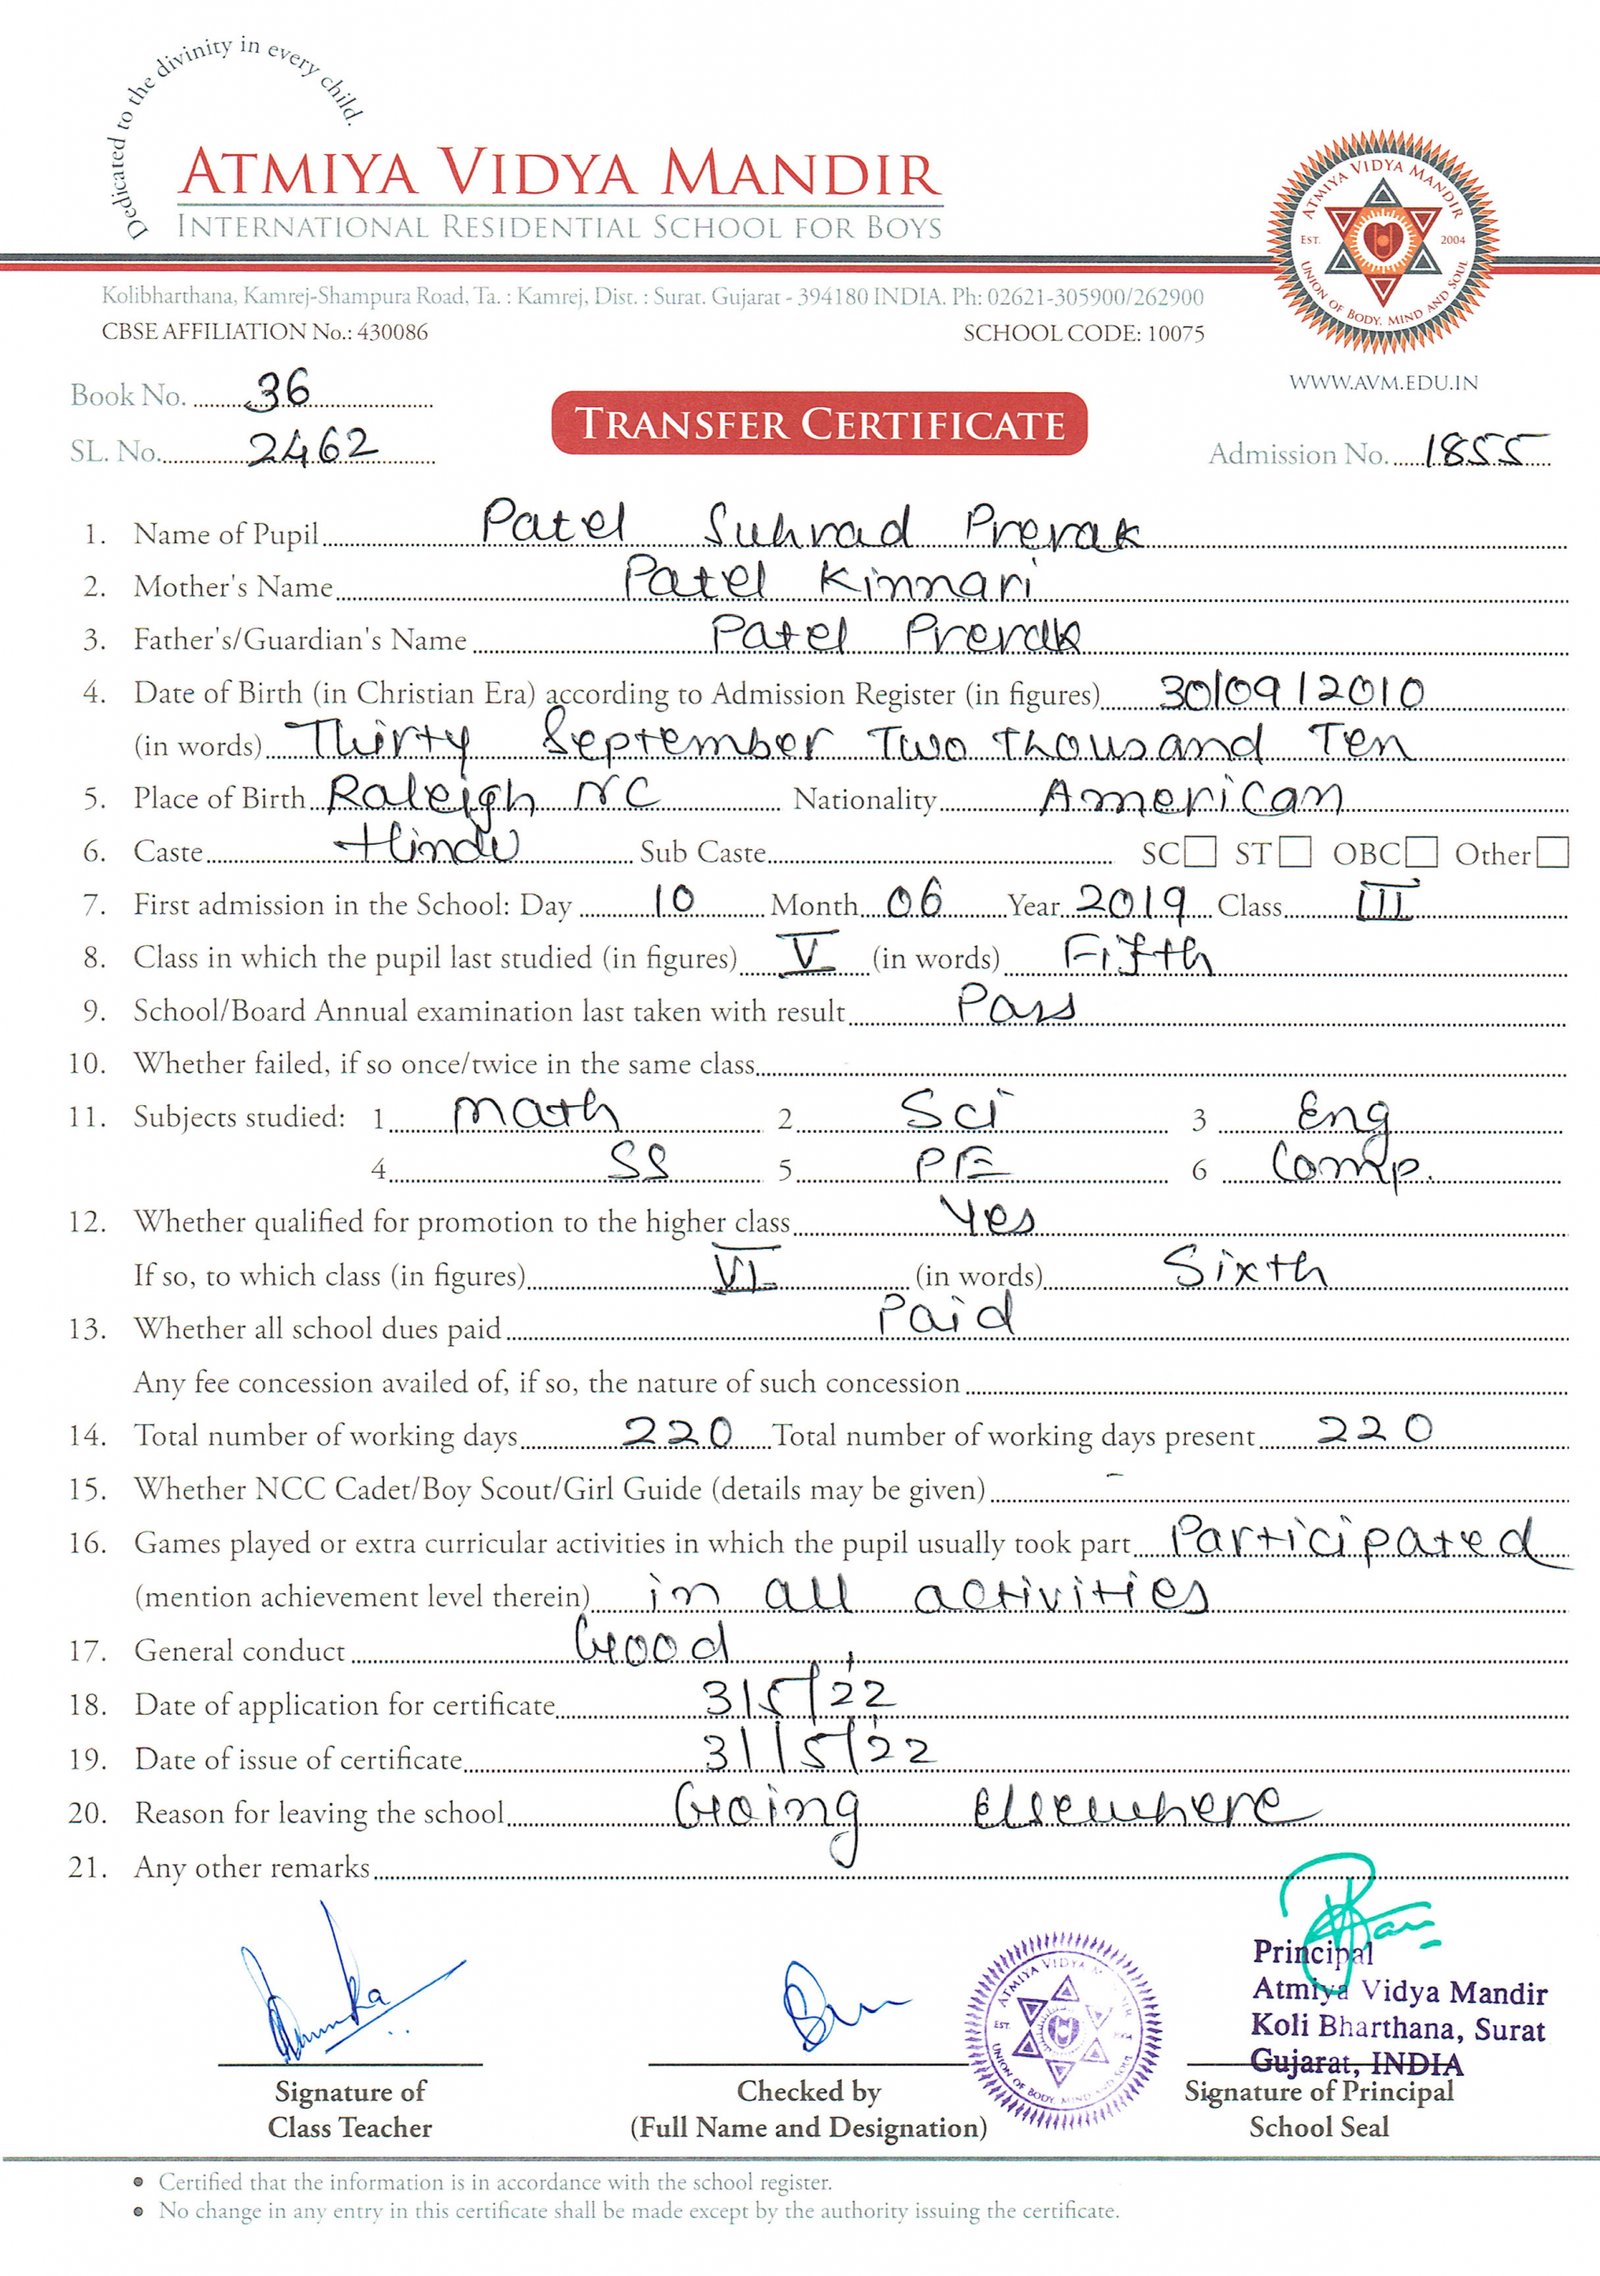 Dedicated to the divinity in every child.
ATMIYA VIDYA MANDIR
INTERNATIONAL RESIDENTIAL SCHOOL FOR BOYS
ATMIYA VIDYA MANDIR
EST. 2004
UNION OF BODY, MIND AND SOUL
Kolibharthana, Kamrej-Shampura Road, Ta. : Kamrej, Dist. : Surat. Gujarat - 394180 INDIA. Ph: 02621-305900/262900
CBSE AFFILIATION No.: 430086 SCHOOL CODE: 10075
WWW.AVM.EDU.IN
Book No. 36
TRANSFER CERTIFICATE
SL. No. 2462 Admission No. 1855
1. Name of Pupil Patel Suhrad Prerak
2. Mother's Name Patel Kinnari
3. Father's/Guardian's Name Patel Prerak
4. Date of Birth (in Christian Era) according to Admission Register (in figures) 30/09/2010
(in words) Thirty September Two Thousand Ten
5. Place of Birth Raleigh NC Nationality American
6. Caste Hindu Sub Caste SC ST OBC Other
7. First admission in the School: Day 10 Month 06 Year 2019 Class III
8. Class in which the pupil last studied (in figures) V (in words) Fifth
9. School/Board Annual examination last taken with result Pass
10. Whether failed, if so once/twice in the same class
11. Subjects studied: 1 Math 2 Sci 3 Eng
4 SS 5 PE 6 Comp.
12. Whether qualified for promotion to the higher class Yes
If so, to which class (in figures) VI (in words) Sixth
13. Whether all school dues paid Paid
Any fee concession availed of, if so, the nature of such concession
14. Total number of working days 220 Total number of working days present 220
15. Whether NCC Cadet/Boy Scout/Girl Guide (details may be given) -
16. Games played or extra curricular activities in which the pupil usually took part Participated
(mention achievement level therein) in all activities
17. General conduct Good
18. Date of application for certificate 3/5/22
19. Date of issue of certificate 31/5/22
20. Reason for leaving the school Going Elsewhere
21. Any other remarks
Principal
Atmiya Vidya Mandir
Koli Bharthana, Surat
Gujarat, INDIA
ATMIYA VIDYA MANDIR
EST. 2004
UNION OF BODY, MIND AND SOUL
Signature of Checked by Signature of Principal
Class Teacher (Full Name and Designation) School Seal
• Certified that the information is in accordance with the school register.
• No change in any entry in this certificate shall be made except by the authority issuing the certificate.